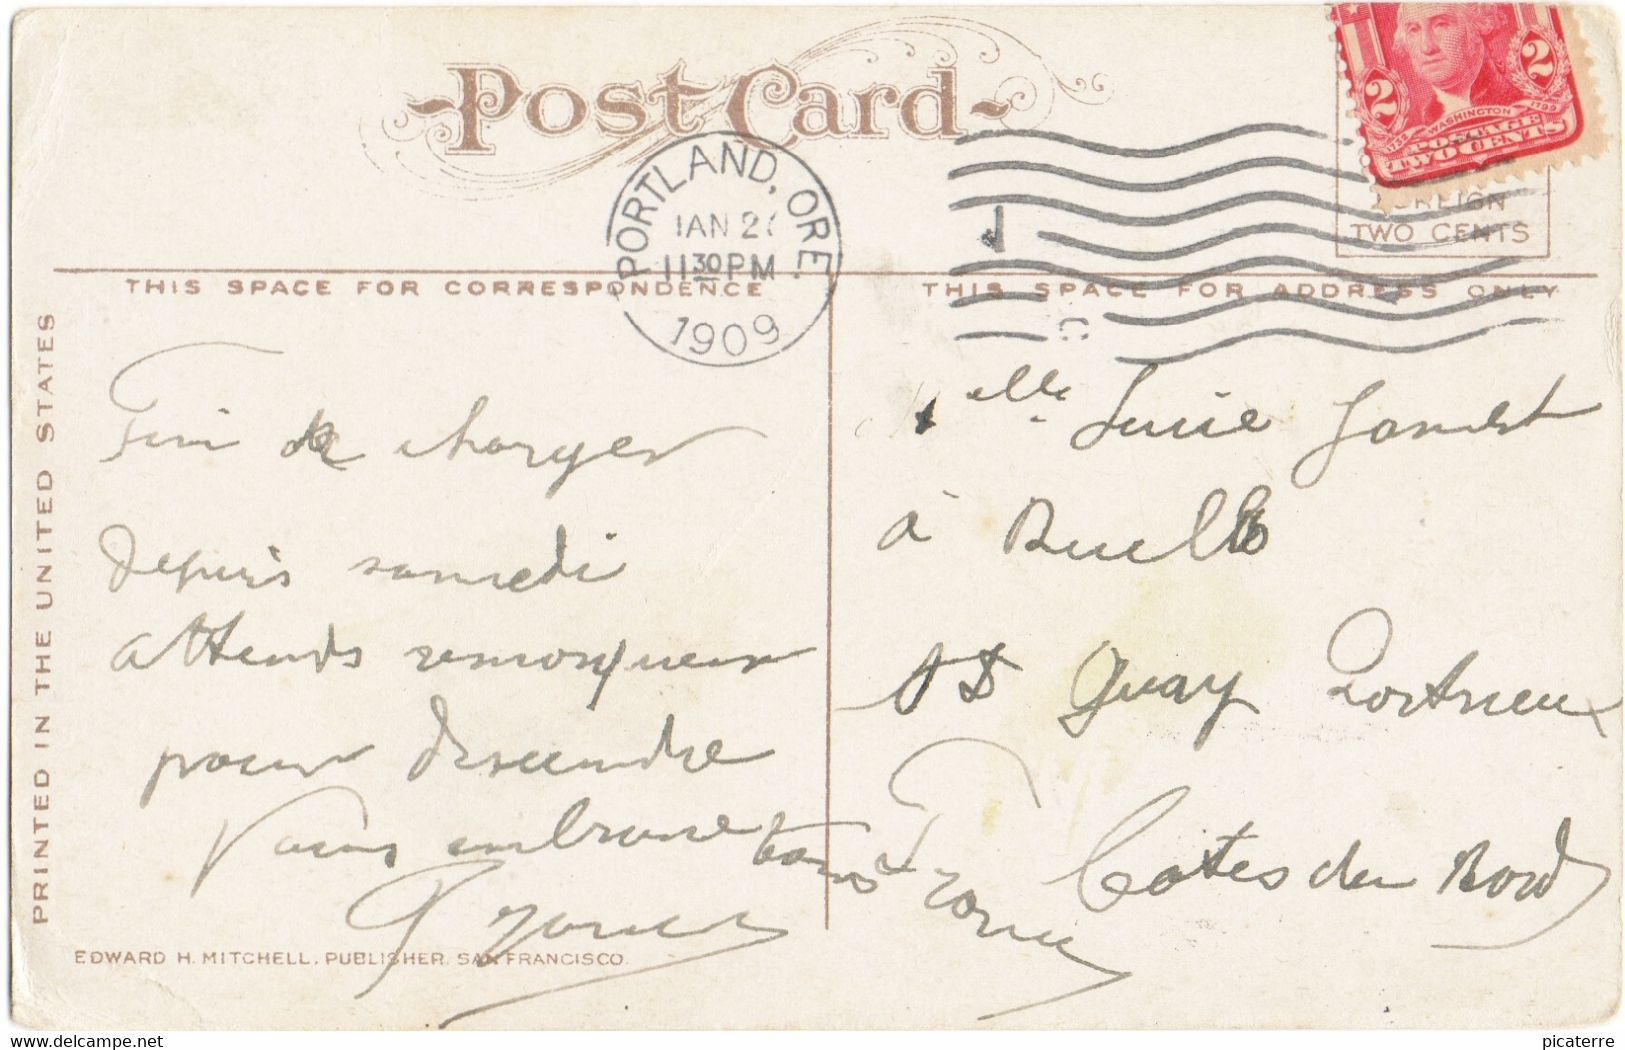 Post Card
PORTLAND, ORE.
JAN 2
11 30 PM
1909
2 2
1732 WASHINGTON 1799
POSTAGE
TWO CENTS
FOREIGN
TWO CENTS
THIS SPACE FOR CORRESPONDENCE
THIS SPACE FOR ADDRESS ONLY
PRINTED IN THE UNITED STATES
Fini de charger
depuis samedi
attends remorqueur
pour descendre
Vous embrasse tous
elle Lucie
à
St Quay Portrieux
Côtes du Nord
France
EDWARD H. MITCHELL, PUBLISHER, SAN FRANCISCO.
www.delcampe.net
picaterre